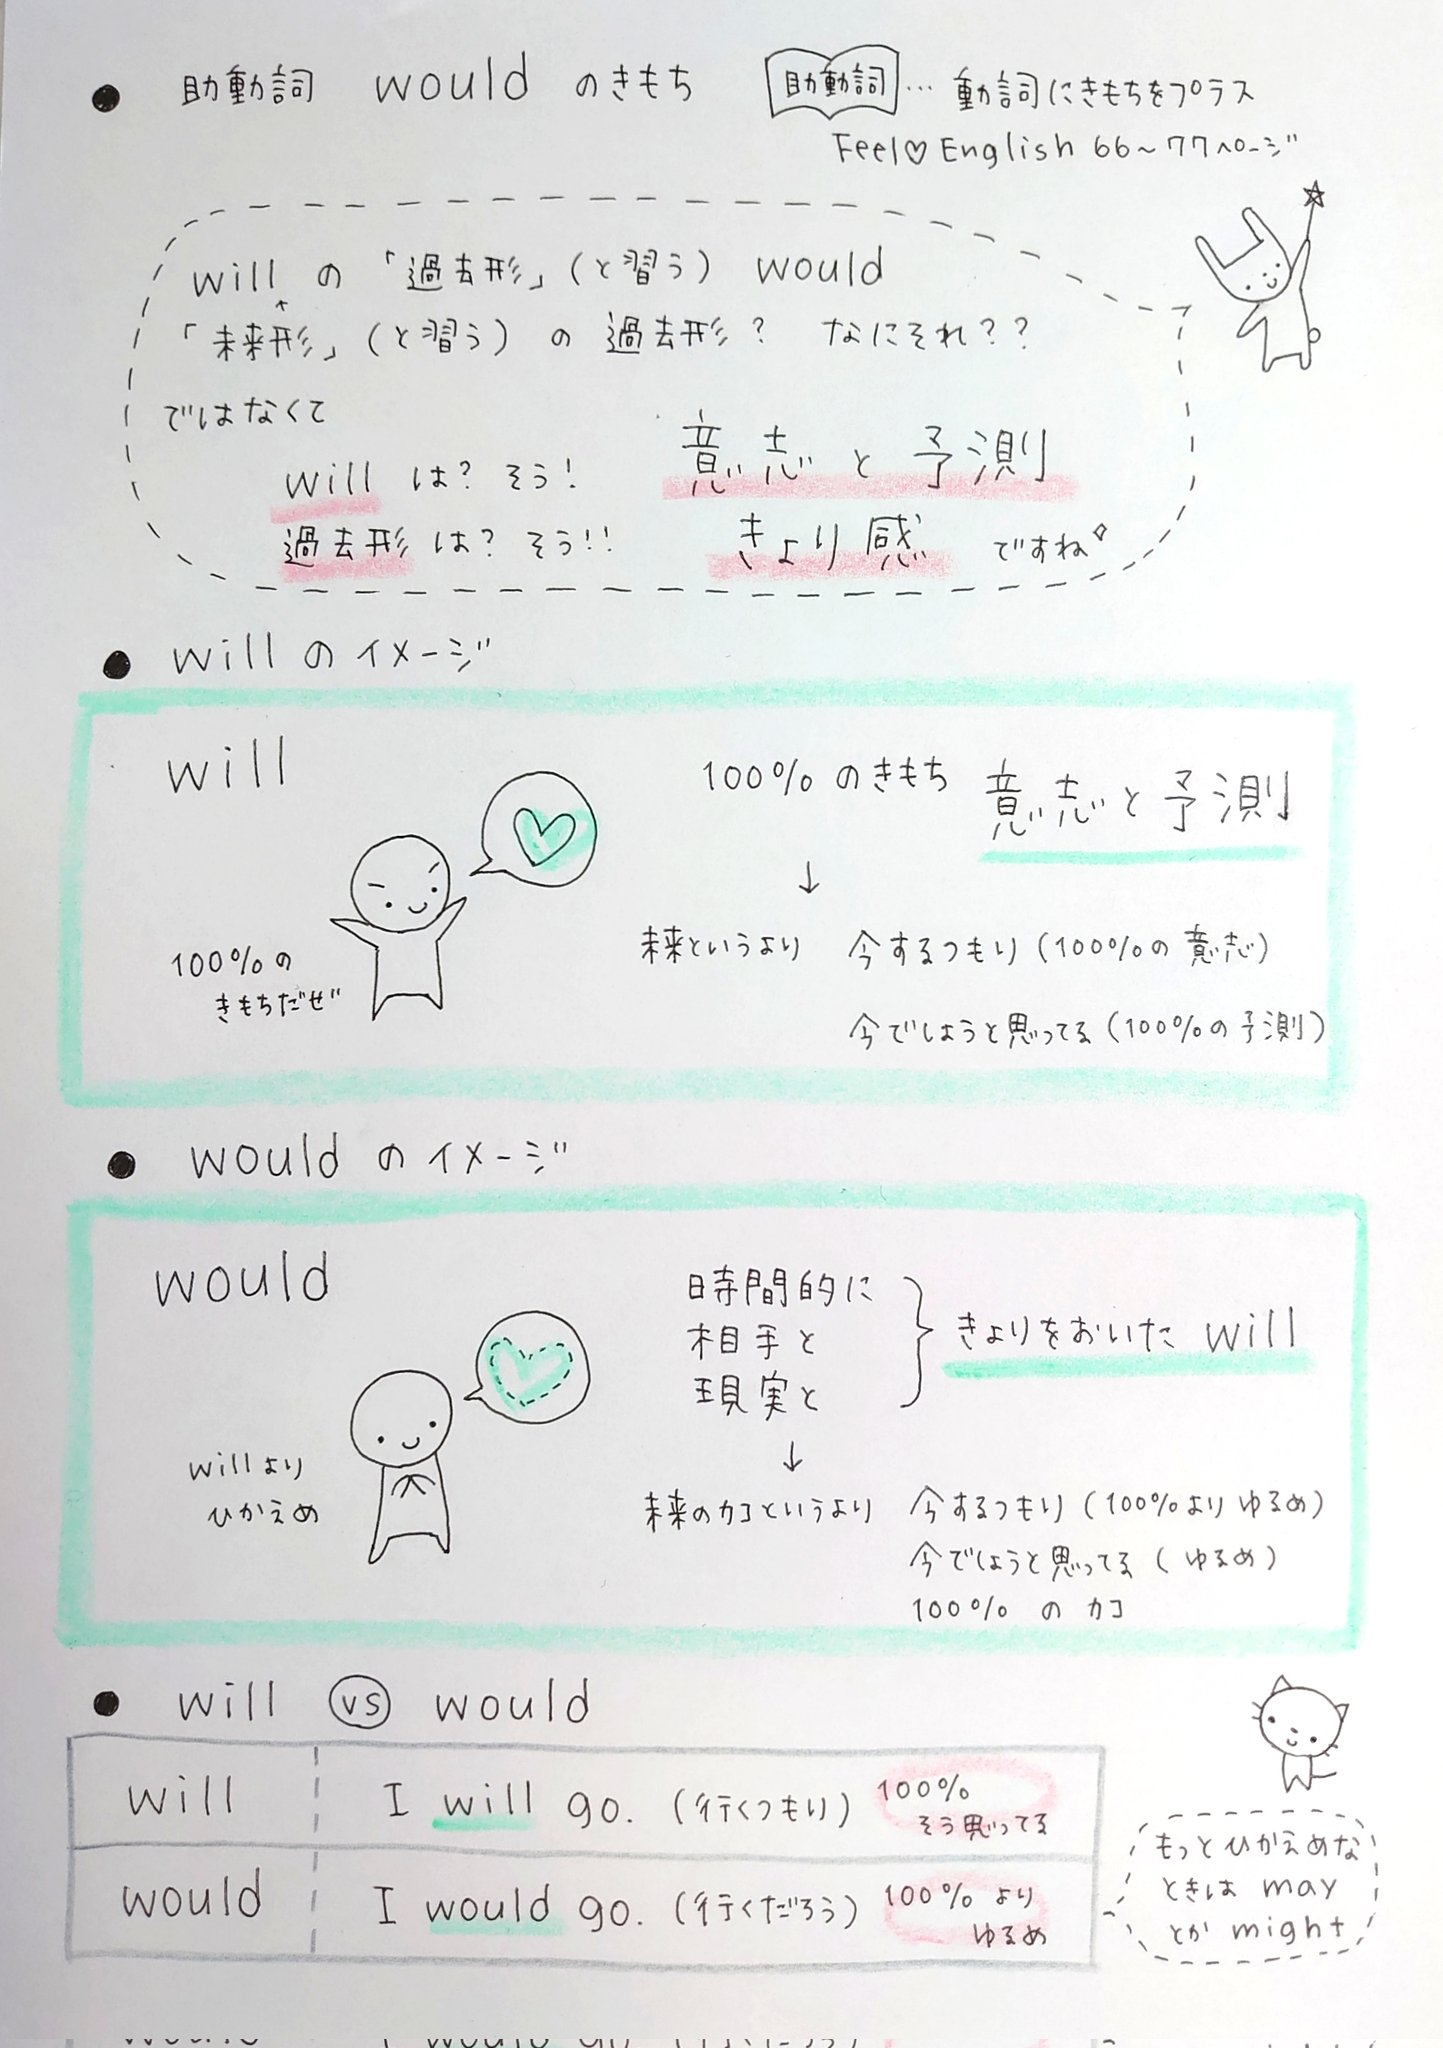 ● 助動詞 would のきもち
助動詞 … 動詞にきもちをプラス
Feel♡English 66〜77ページ
will の「過去形」(と習う) would
「未来形」(と習う) の 過去形? なにそれ??
ではなくて
will は? そう! 意志と予測
過去形 は? そう!! きょり感 ですね
● will のイメージ
will
100%のきもち 意志と予測
↓
100%の
きもちだぜ
未来というより 今するつもり(100%の意志)
今でしょうと思ってる(100%の予測)
● would のイメージ
would
時間的に
相手と
現実と
きょりをおいた will
↓
willより
ひかえめ
未来のカコというより 今するつもり(100%よりゆるめ)
今でしょうと思ってる(ゆるめ)
100% の カコ
● will vs would
will I will go. (行くつもり) 100%
そう思ってる
would I would go. (行くだろう) 100%より
ゆるめ
もっとひかえめな
ときは may
とか might